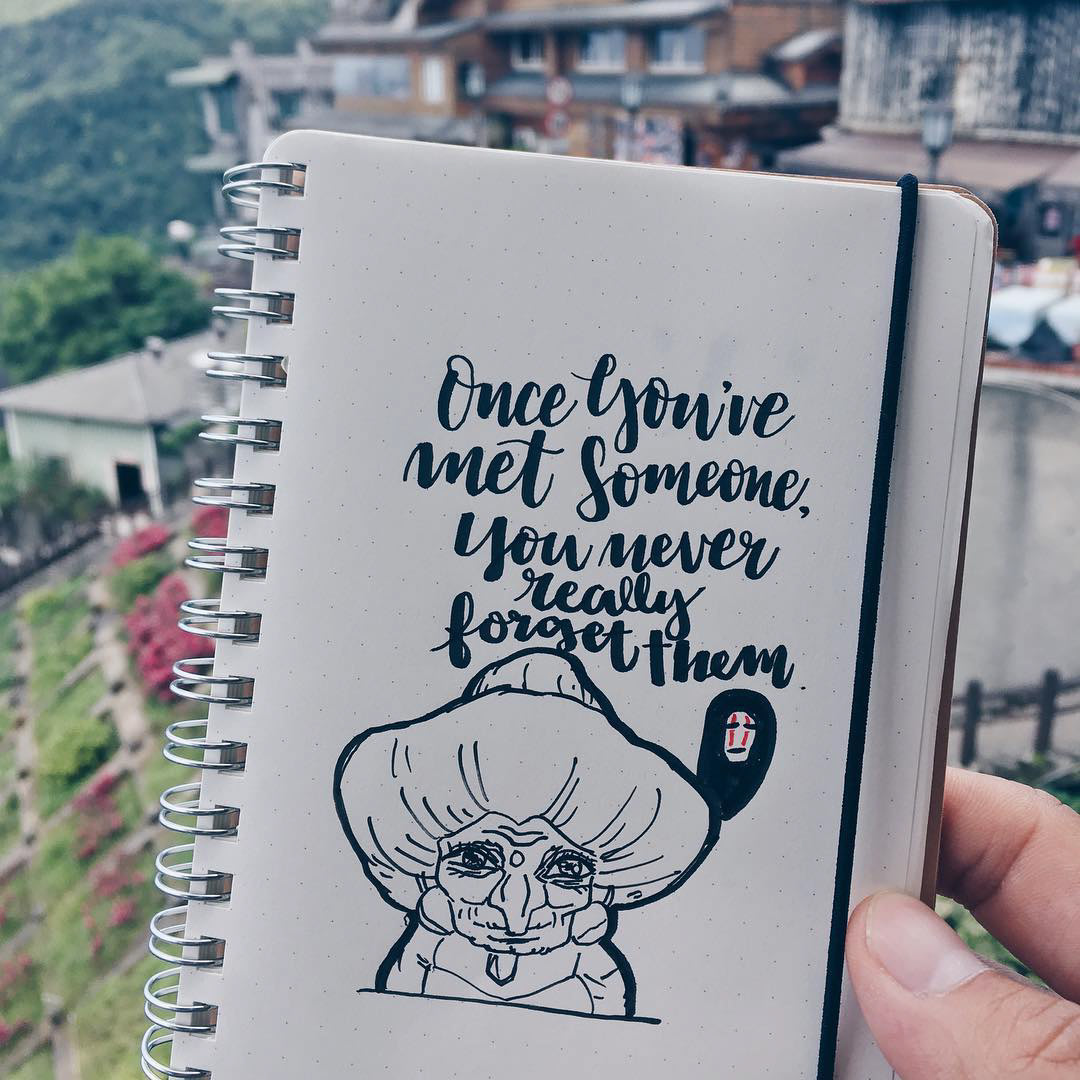 Once You've
met Someone,
You never
really
forget them